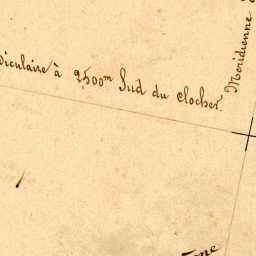 diculaire à 2500m Sud du clocher.
Meridienne